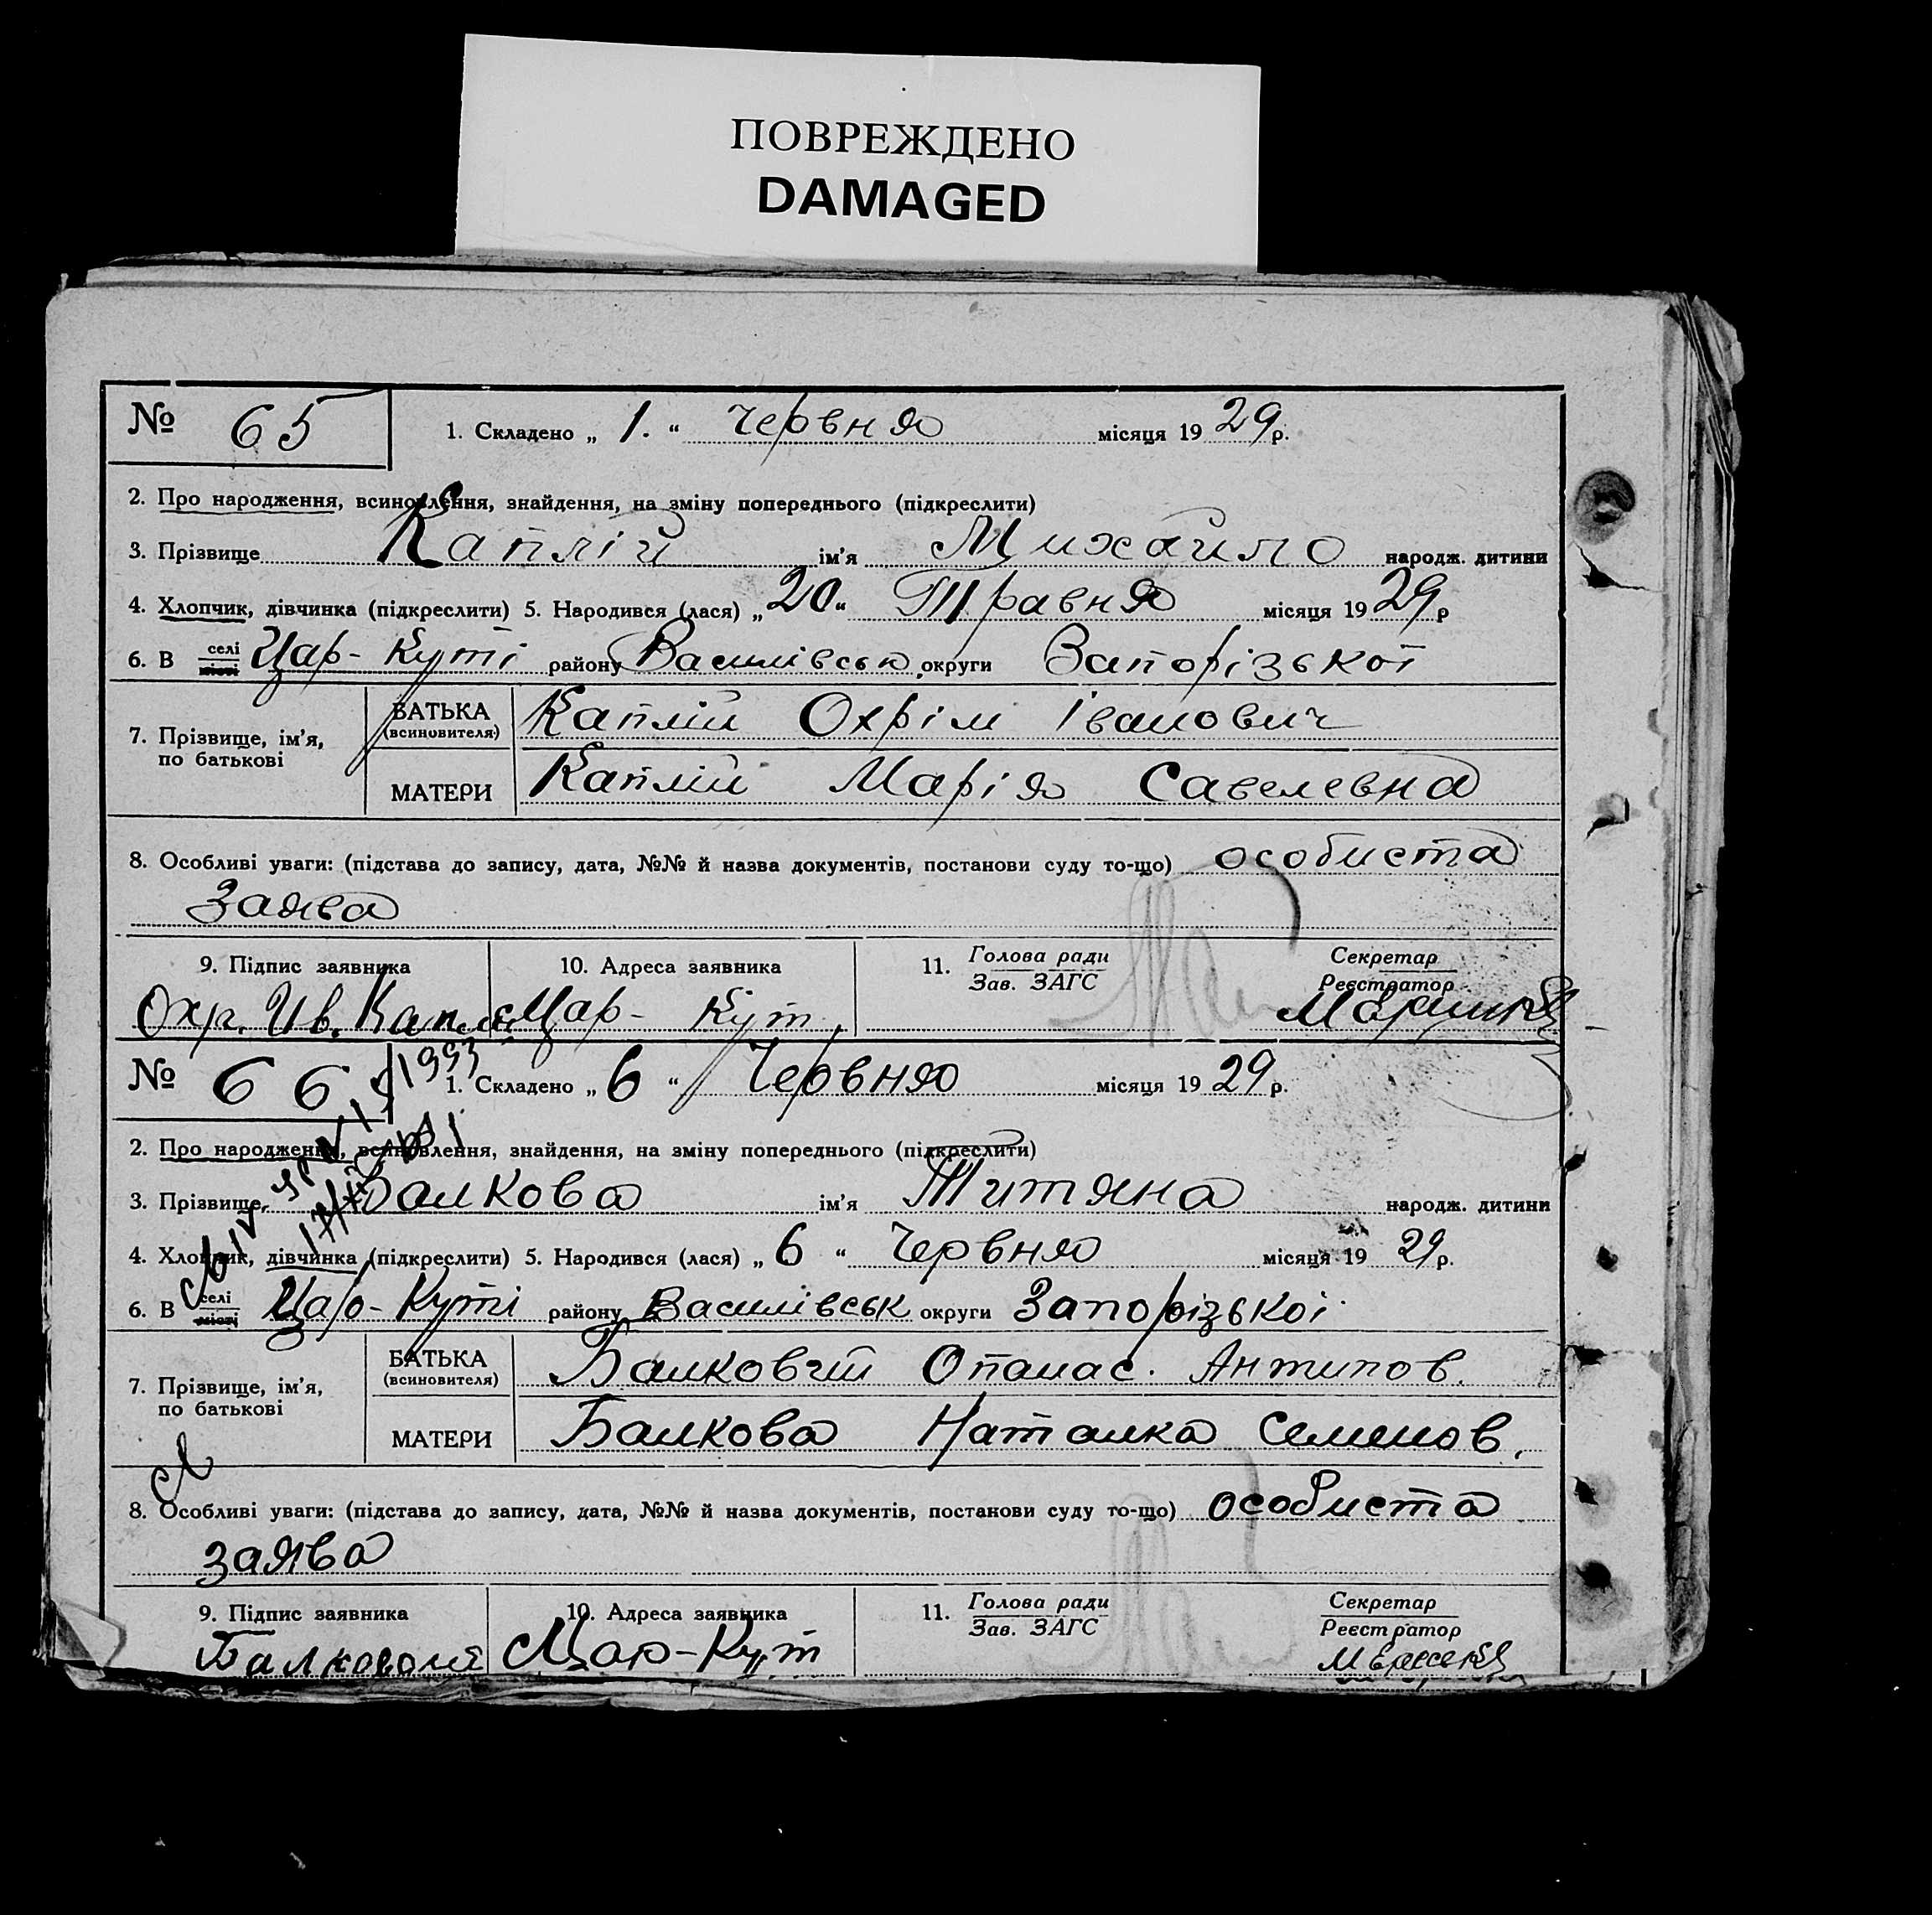 ПОВРЕЖДЕНО
DAMAGED
№ 65
1. Складено „ 1. “ червня місяця 19 29 р.
2. Про народження, всиновлення, знайдення, на зміну попереднього (підкреслити)
3. Прізвище Каплій ім'я Михайло народж. дитини
4. Хлопчик, дівчинка (підкреслити) 5. Народився (лася) „ 20 “ Травня місяця 19 29 р
6. В селі місті Цар-Куті району Василівськ. округи Запорізької
7. Прізвище, ім'я, по батькові
БАТЬКА (всиновителя) Каплій Охрім Іванович
МАТЕРИ Каплій Марія Савелевна
8. Особливі уваги: (підстава до запису, дата, №№ й назва документів, постанови суду то-що) особиста
заява
9. Підпис заявника 10. Адреса заявника 11. Голова ради Зав. ЗАГС Секретар Реєстратор
Охр. Ив. Цар-Кут
№ 66
1. Складено „ 6 “ Червня місяця 19 29 р.
2. Про народження, всиновлення, знайдення, на зміну попереднього (підкреслити)
3. Прізвище Балкова ім'я Титяна народж. дитини
4. Хлопчик, дівчинка (підкреслити) 5. Народився (лася) „ 6 “ Червня місяця 19 29 р.
6. В селі місті Цар-Куті району Василівськ округи Запорізької
7. Прізвище, ім'я, по батькові
БАТЬКА (всиновителя) Балковий Опанас. Антипов.
МАТЕРИ Балкова Наталка Семенов.
8. Особливі уваги: (підстава до запису, дата, №№ й назва документів, постанови суду то-що) особиста
заява
9. Підпис заявника 10. Адреса заявника 11. Голова ради Зав. ЗАГС Секретар Реєстратор
Цар-Кут